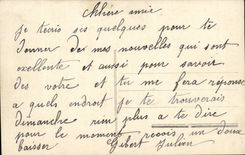 Chère amie
je tecris ses quelques pour te
donner des mes nouvelles qui sont
exellente et aussi pour savoir
des votre et tu me fera réponse
a quels endroit je te trouverais
dimanche rien plus a te dire
pour le moment recois un doux
baiser Gibert Julien